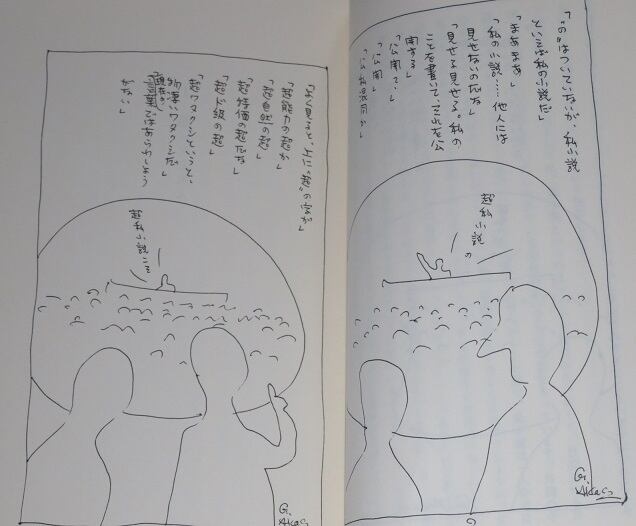 「"の"はついていないが、私小説
といえば私の小説だ」
「まあまあ」
「私の小説……他人には
見せないのだな」
「見せる見せる。私の
ことを書いて、それを公
開する」
「公開
「公開」
「公私混同か」
超私小説の
G.
「よく見ると、上に"超"の字が」
「超能力の超か」
「超自然の超」
「超特価の超だな」
「超ド級の超」
「超ワタクシというと、
物凄いワタクシだ」
言葉ではあらわしよう
がない」
超私小説こそ
G.